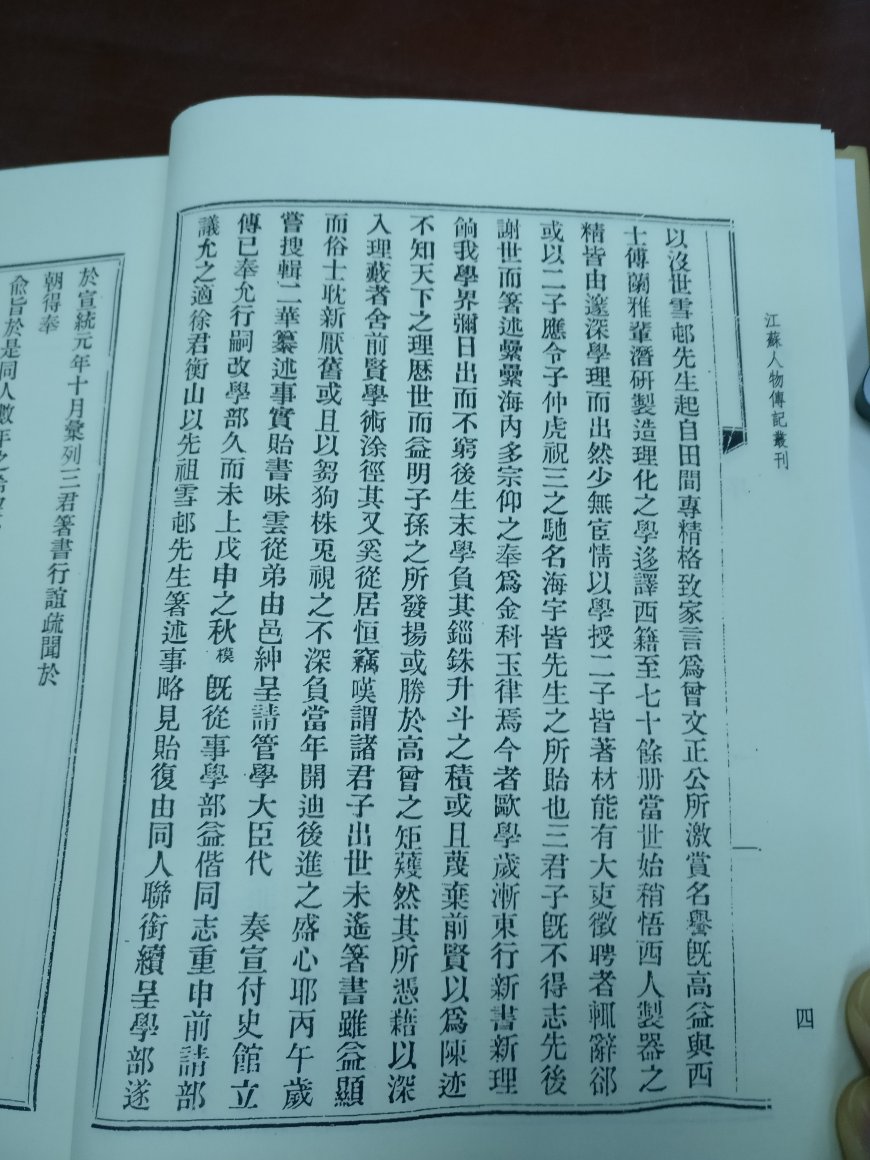 江蘇人物傳記叢刊
四
以沒世雪邨先生起自田間專精格致家言爲曾文正公所激賞名譽旣高益與西
士傅蘭雅輩潛研製造理化之學迻譯西籍至七十餘册當世始稍悟西人製器之
精皆由邃深學理而出然少無宦情以學授二子皆著材能有大吏徵聘者輒辭郤
或以二子應令子仲虎祝三之馳名海宇皆先生之所貽也三君子旣不得志先後
謝世而箸述纍纍海內多宗仰之奉爲金科玉律焉今者歐學歲漸東行新書新理
餉我學界彌日出而不窮後生末學負其錙銖升斗之積或且蔑棄前賢以爲陳迹
不知天下之理歷世而益明子孫之所發揚或勝於高曾之矩矱然其所憑藉以深
入理藪者舍前賢學術涂徑其又奚從居恒竊嘆謂諸君子出世未遙箸書雖益顯
而俗士耽新厭舊或且以芻狗株兎視之不深負當年開迪後進之盛心耶丙午歲
嘗搜輯二華纂述事實貽書味雲從弟由邑紳呈請管學大臣代 奏宣付史館立
傳已奉允行嗣改學部久而未上戊申之秋模旣從事學部益偕同志重申前請部
議允之適徐君衡山以先祖雪邨先生箸述事略見貽復由同人聯銜續呈學部遂
於宣統元年十月彙列三君箸書行誼疏聞於
朝得奉
俞旨於是同人數年之